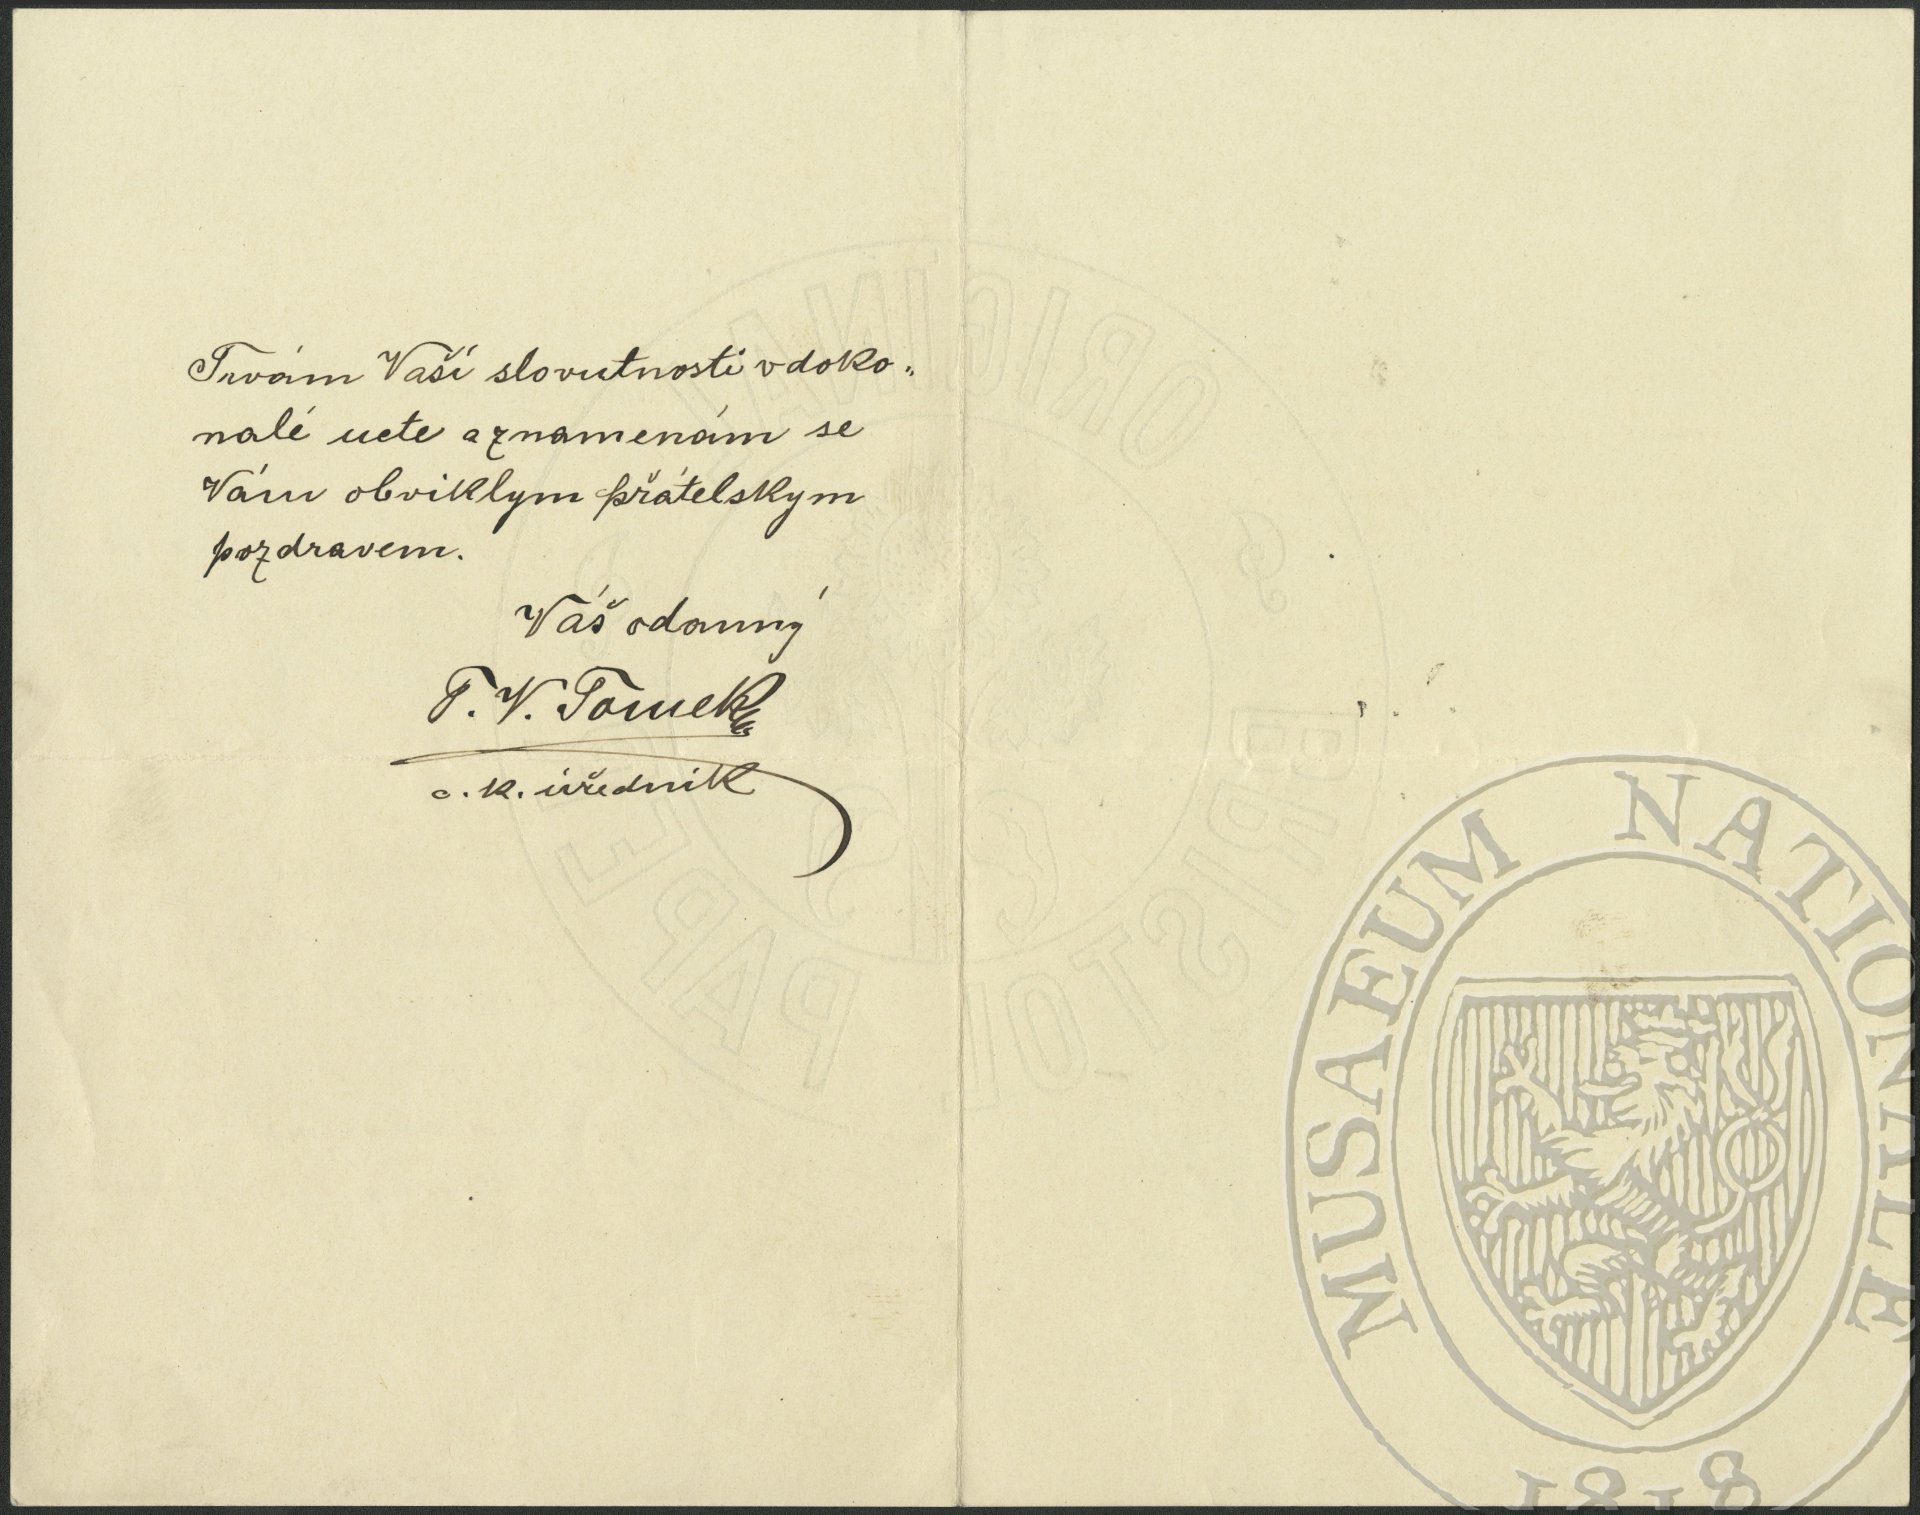 Trvám Vaší slovutnosti v doko„
nalé ucte a znamenám se
Vám obviklym přátelskym
pozdravem.
Váš odanný
T. V. Tomek
c. k. úřednik
ORIGINAL
PAPE
MUSAEUM NATIONALE
1818